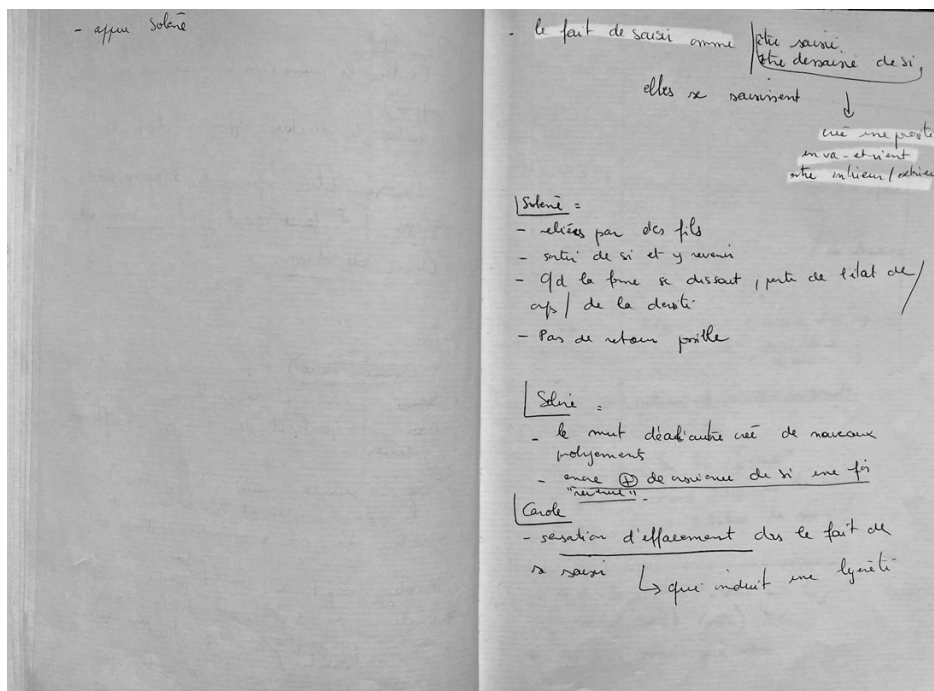 - appui Solené
- le fait de saisir comme | être saisie
être dessaisie de si,
elles se saisissent
↓
créé une porosité
en va-et-vient
entre intérieur/extérieur
Solené =
- reliées par des fils
- sortir de si et y revenir
- Qd la forme se dissout, perte de l'état de
corps / de la densité
- Pas de retour possible
Solené =
- le mvt de l'autre créé de nouveaux
- encore ⊕ de conscience de si une fois
"revenue".
Carole
- sensation d'effacement ds le fait de
se saisir ↳ qui induit une légèreté